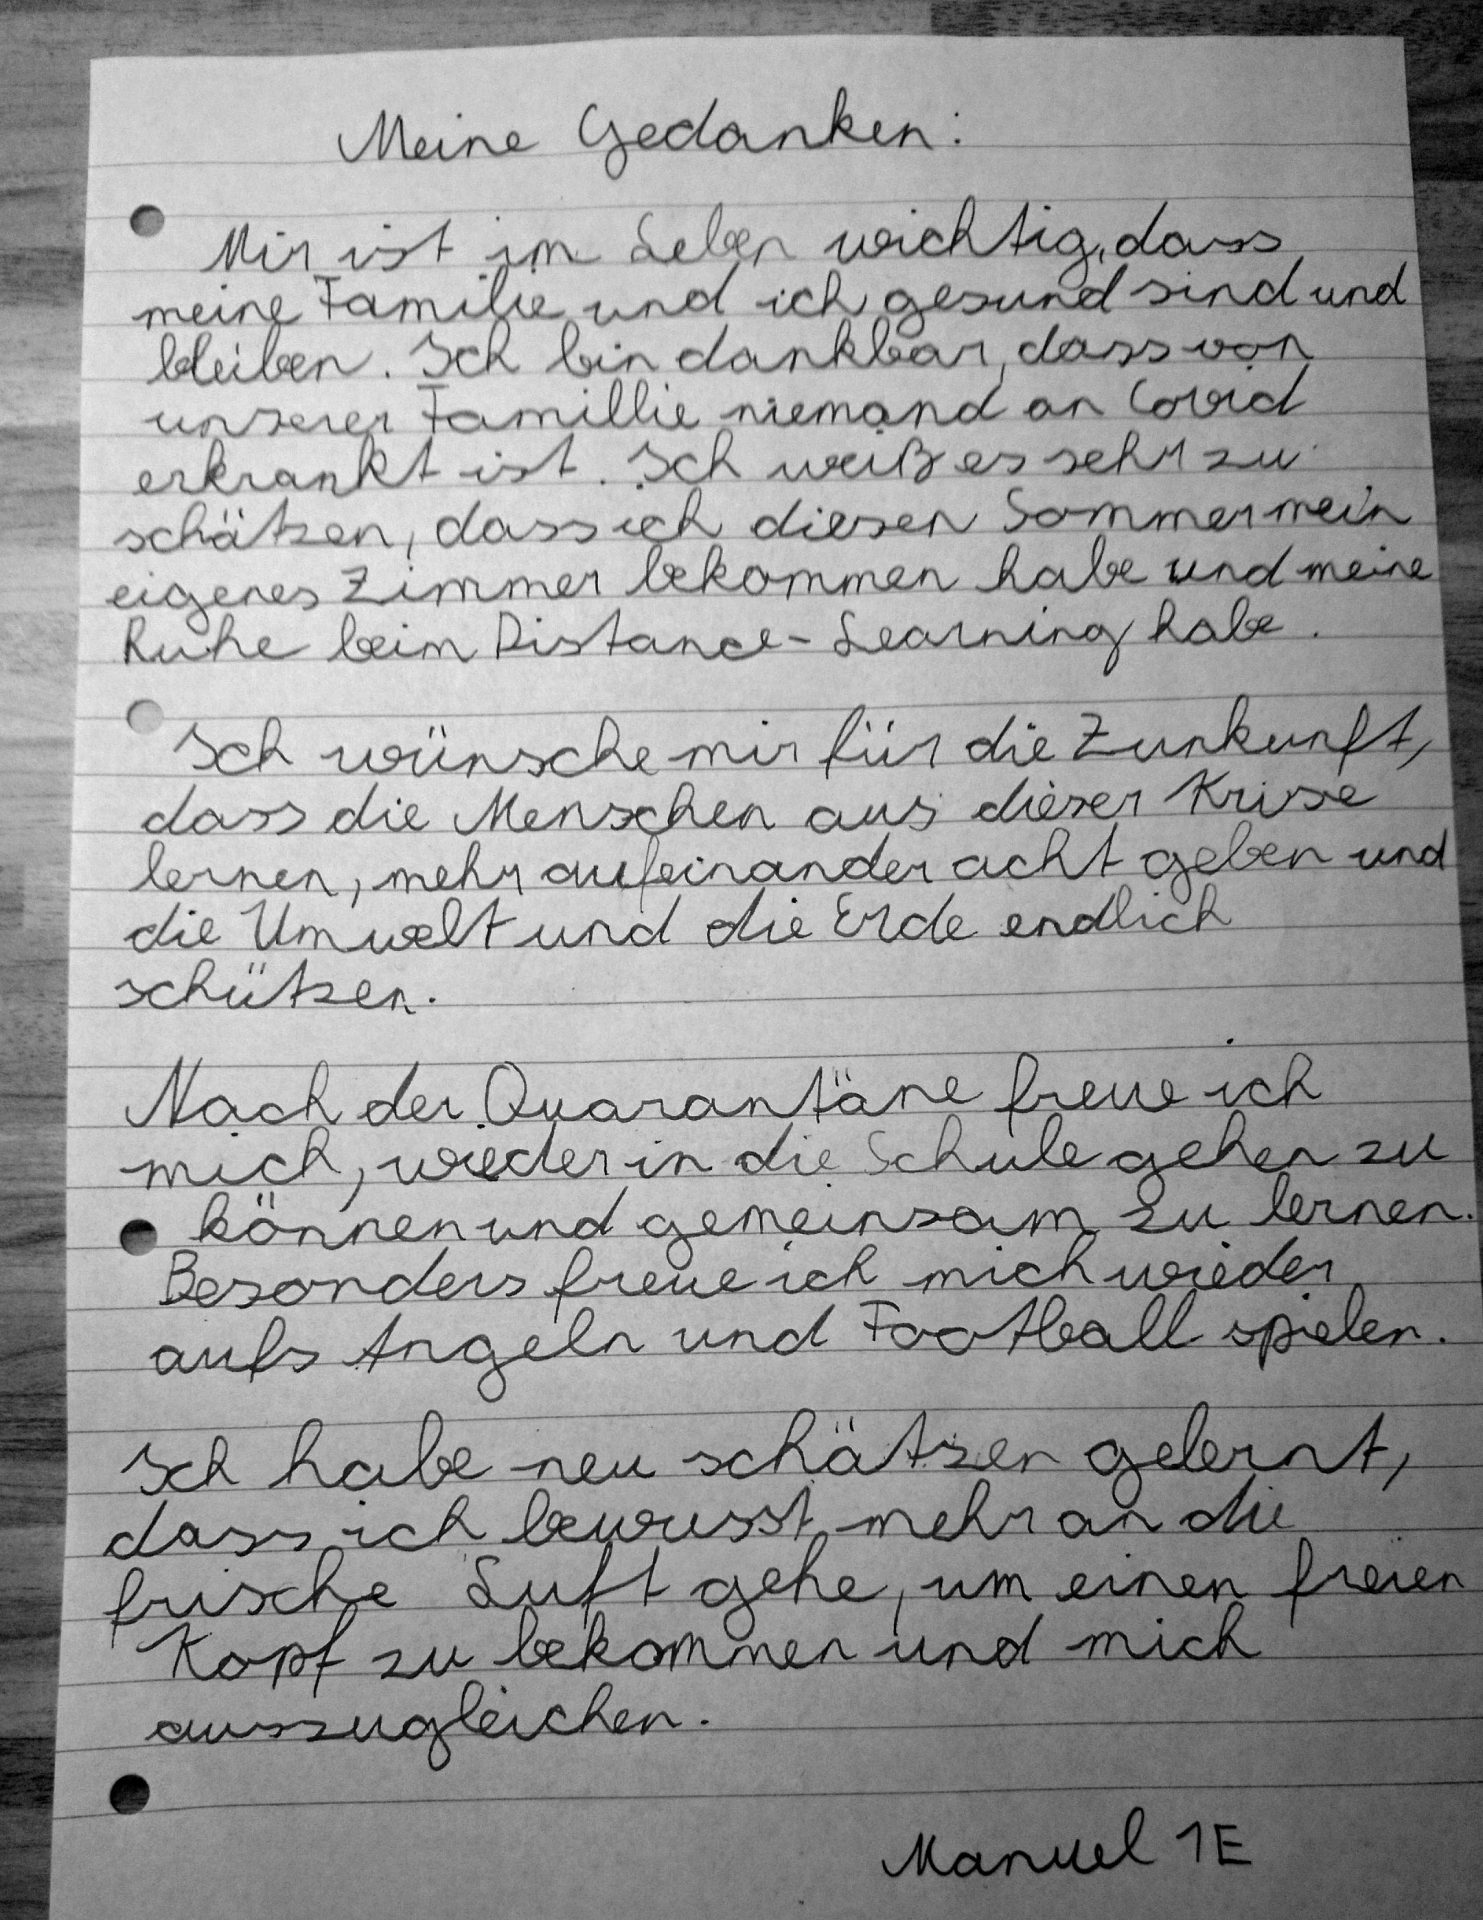 Meine Gedanken:
Mir ist im Leben wichtig, dass
meine Familie und ich gesund sind und
bleiben. Ich bin dankbar, dass von
unserer Famillie niemand an Covid
erkrankt ist. Ich weiß es sehr zu
schätzen, dass ich diesen Sommer mein
eigenes Zimmer bekommen habe und meine
Ruhe beim Distance-Learning habe.
Ich wünsche mir für die Zunkunft,
dass die Menschen aus dieser Krise
lernen, mehr aufeinander acht geben und
die Umwelt und die Erde endlich
schützen.
Nach der Quarantäne freue ich
mich, wieder in die Schule gehen zu
können und gemeinsam zu lernen.
Besonders freue ich mich wieder
aufs Angeln und Football spielen.
Ich habe neu schätzen gelernt,
dass ich bewusst mehr an die
frische Luft gehe, um einen freien
Kopf zu bekommen und mich
auszugleichen.
Manuel 1E